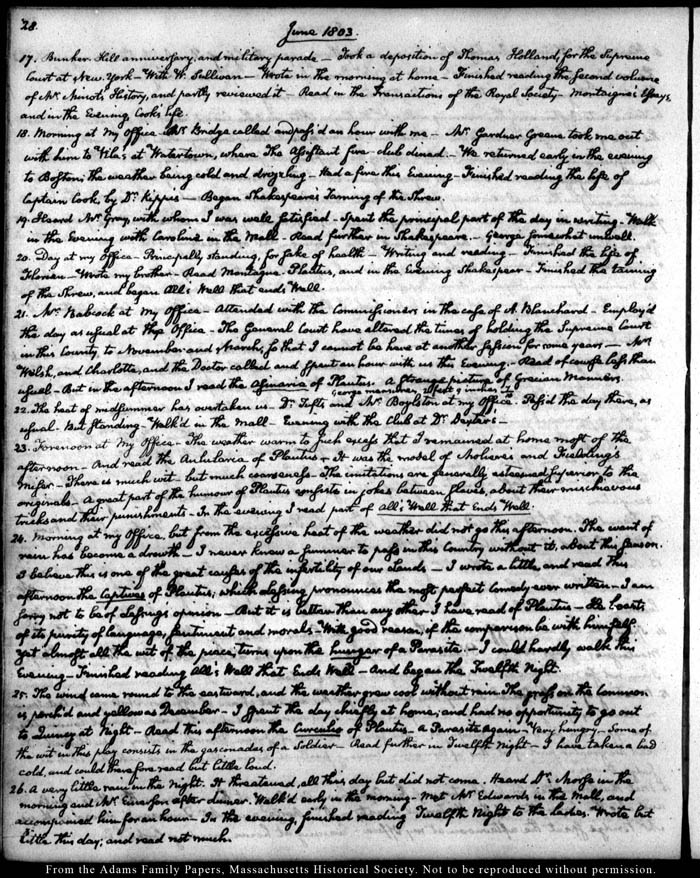 28.
June 1803.
17. Bunker-Hill anniversary, and military parade — Took a deposition of Thomas Holland, for the Supreme
Court at New-York — With W. Sullivan — Wrote in the morning at home — Finished reading the second volume
of Mr. Minot's History, and partly reviewed it — Read in the Transactions of the Royal Society — Montaigne's Essays,
and in the Evening Cook's life.
18. Morning at my Office — Mr. Bridge called and pass'd an hour with me — Mr. Gardner Greene took me out
with him to Vila's at Watertown, where the Assistant fire-club dined — We returned early in the evening
to Boston; the weather being cold and drizzling — Had a fire this Evening — Finished reading the life of
Captain Cook, by Dr. Kippis — Began Shakespeare's Taming of the Shrew.
19. Heard Mr. Gray, with whom I was well satisfied — Spent the principal part of the day in writing — Walk
in the Evening with Caroline in the Mall — Read further in Shakespeare. — George somewhat unwell.
20. Day at my Office — Principally standing, for sake of health — Writing and reading — Finished the life of
Florian — Wrote my brother — Read Montagne. Plautus, and in the evening Shakespear — Finished the taming
of the Shrew, and began All's Well that ends Well.
21. Mr. Babcock at my Office — Attended with the Commissioners in the case of A. Blanchard — Employ'd
the day as usual at the Office — The General Court have altered the times of holding the Supreme Court
in this County, to November and March, so that I cannot be here at another session for some years — Mrs.
Welsh, and Charlotte, and the Doctor called and spent an hour with us this Evening. — Read of course less than
usual — But in the afternoon I read the Asinaria of Plautus. A strange picture of Grecian Manners.
George measures, 2 feet 9 inches
22. The heat of midsummer has overtaken us — Dr. Tufts and Mr. Boylston at my office — Pass'd the day there, as
usual. But standing — Walk'd in the Mall — Evening with the Club at Dr. Dexter's —
23. Forenoon at my Office — The weather warm to such excess that I remained at home most of the
afternoon — And read the Aulularia of Plautus — It was the model of Moliere's and Fielding's
Miser — There is much wit — but much coarseness — The imitations are generally esteemed superior to the
originals — A great part of the humour of Plautus consists in jokes between slaves, about their mischievous
tricks and their punishments — In the evening I read part of All's Well that Ends Well.
24. Morning at my Office, but from the excessive heat of the weather did not go this afternoon. The want of
rain has become a drowth — I never knew a summer to pass in this Country without it, about this season.
I believe this is one of the great causes of the infertility of our lands — I wrote a little, and read this
afternoon the Captives of Plautus; which Lessing pronounces the most perfect Comedy ever written — I am
sorry not to be of Lessing's opinion — But it is better than any other I have read of Plautus — He boasts
of its purity of language, sentiment and morals — With good reason, if the comparison be with himself.
Yet almost all the wit of the piece, turns upon the hunger of a Parasite. — I could hardly walk this
Evening — Finished reading All's Well that Ends Well — And began the Twelfth Night.
25. The wind came round to the eastward, and the weather grew cool without rain. The grass on the Common
is parch'd and yellow as December — I spent the day chiefly at home; and had no opportunity to go out
to Quincy at Night — Read this afternoon the Curculio of Plautus — a Parasite again — Very hungry — Some of
the wit in this play consists in the gasconades of a Soldier — Read further in Twelfth Night — I have taken a bad
cold, and could therefore read but little loud.
26. A very little rain in the night. It threatened, all this day but did not come. Heard Dr. Morse in the
morning and Mr. Emerson after dinner. Walk'd early in the morning — Met Mr. Edwards in the Mall, and
accompanied him for an hour — In the evening, finished reading Twelfth Night to the ladies. Wrote but
little this day; and read not much.
From the Adams Family Papers, Massachusetts Historical Society. Not to be reproduced without permission.